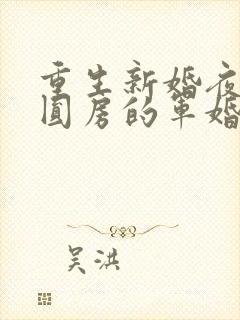 重生新婚夜
圆房的军婚
吴洪